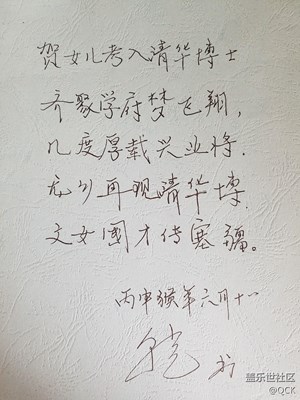 贺女儿考入清华博士
齐聚学府梦飞翔,
几度厚载兴业将.
无少再现清华博.
文女国才传塞疆。
丙申猴年六月十一
书
盖乐世社区
@QCK